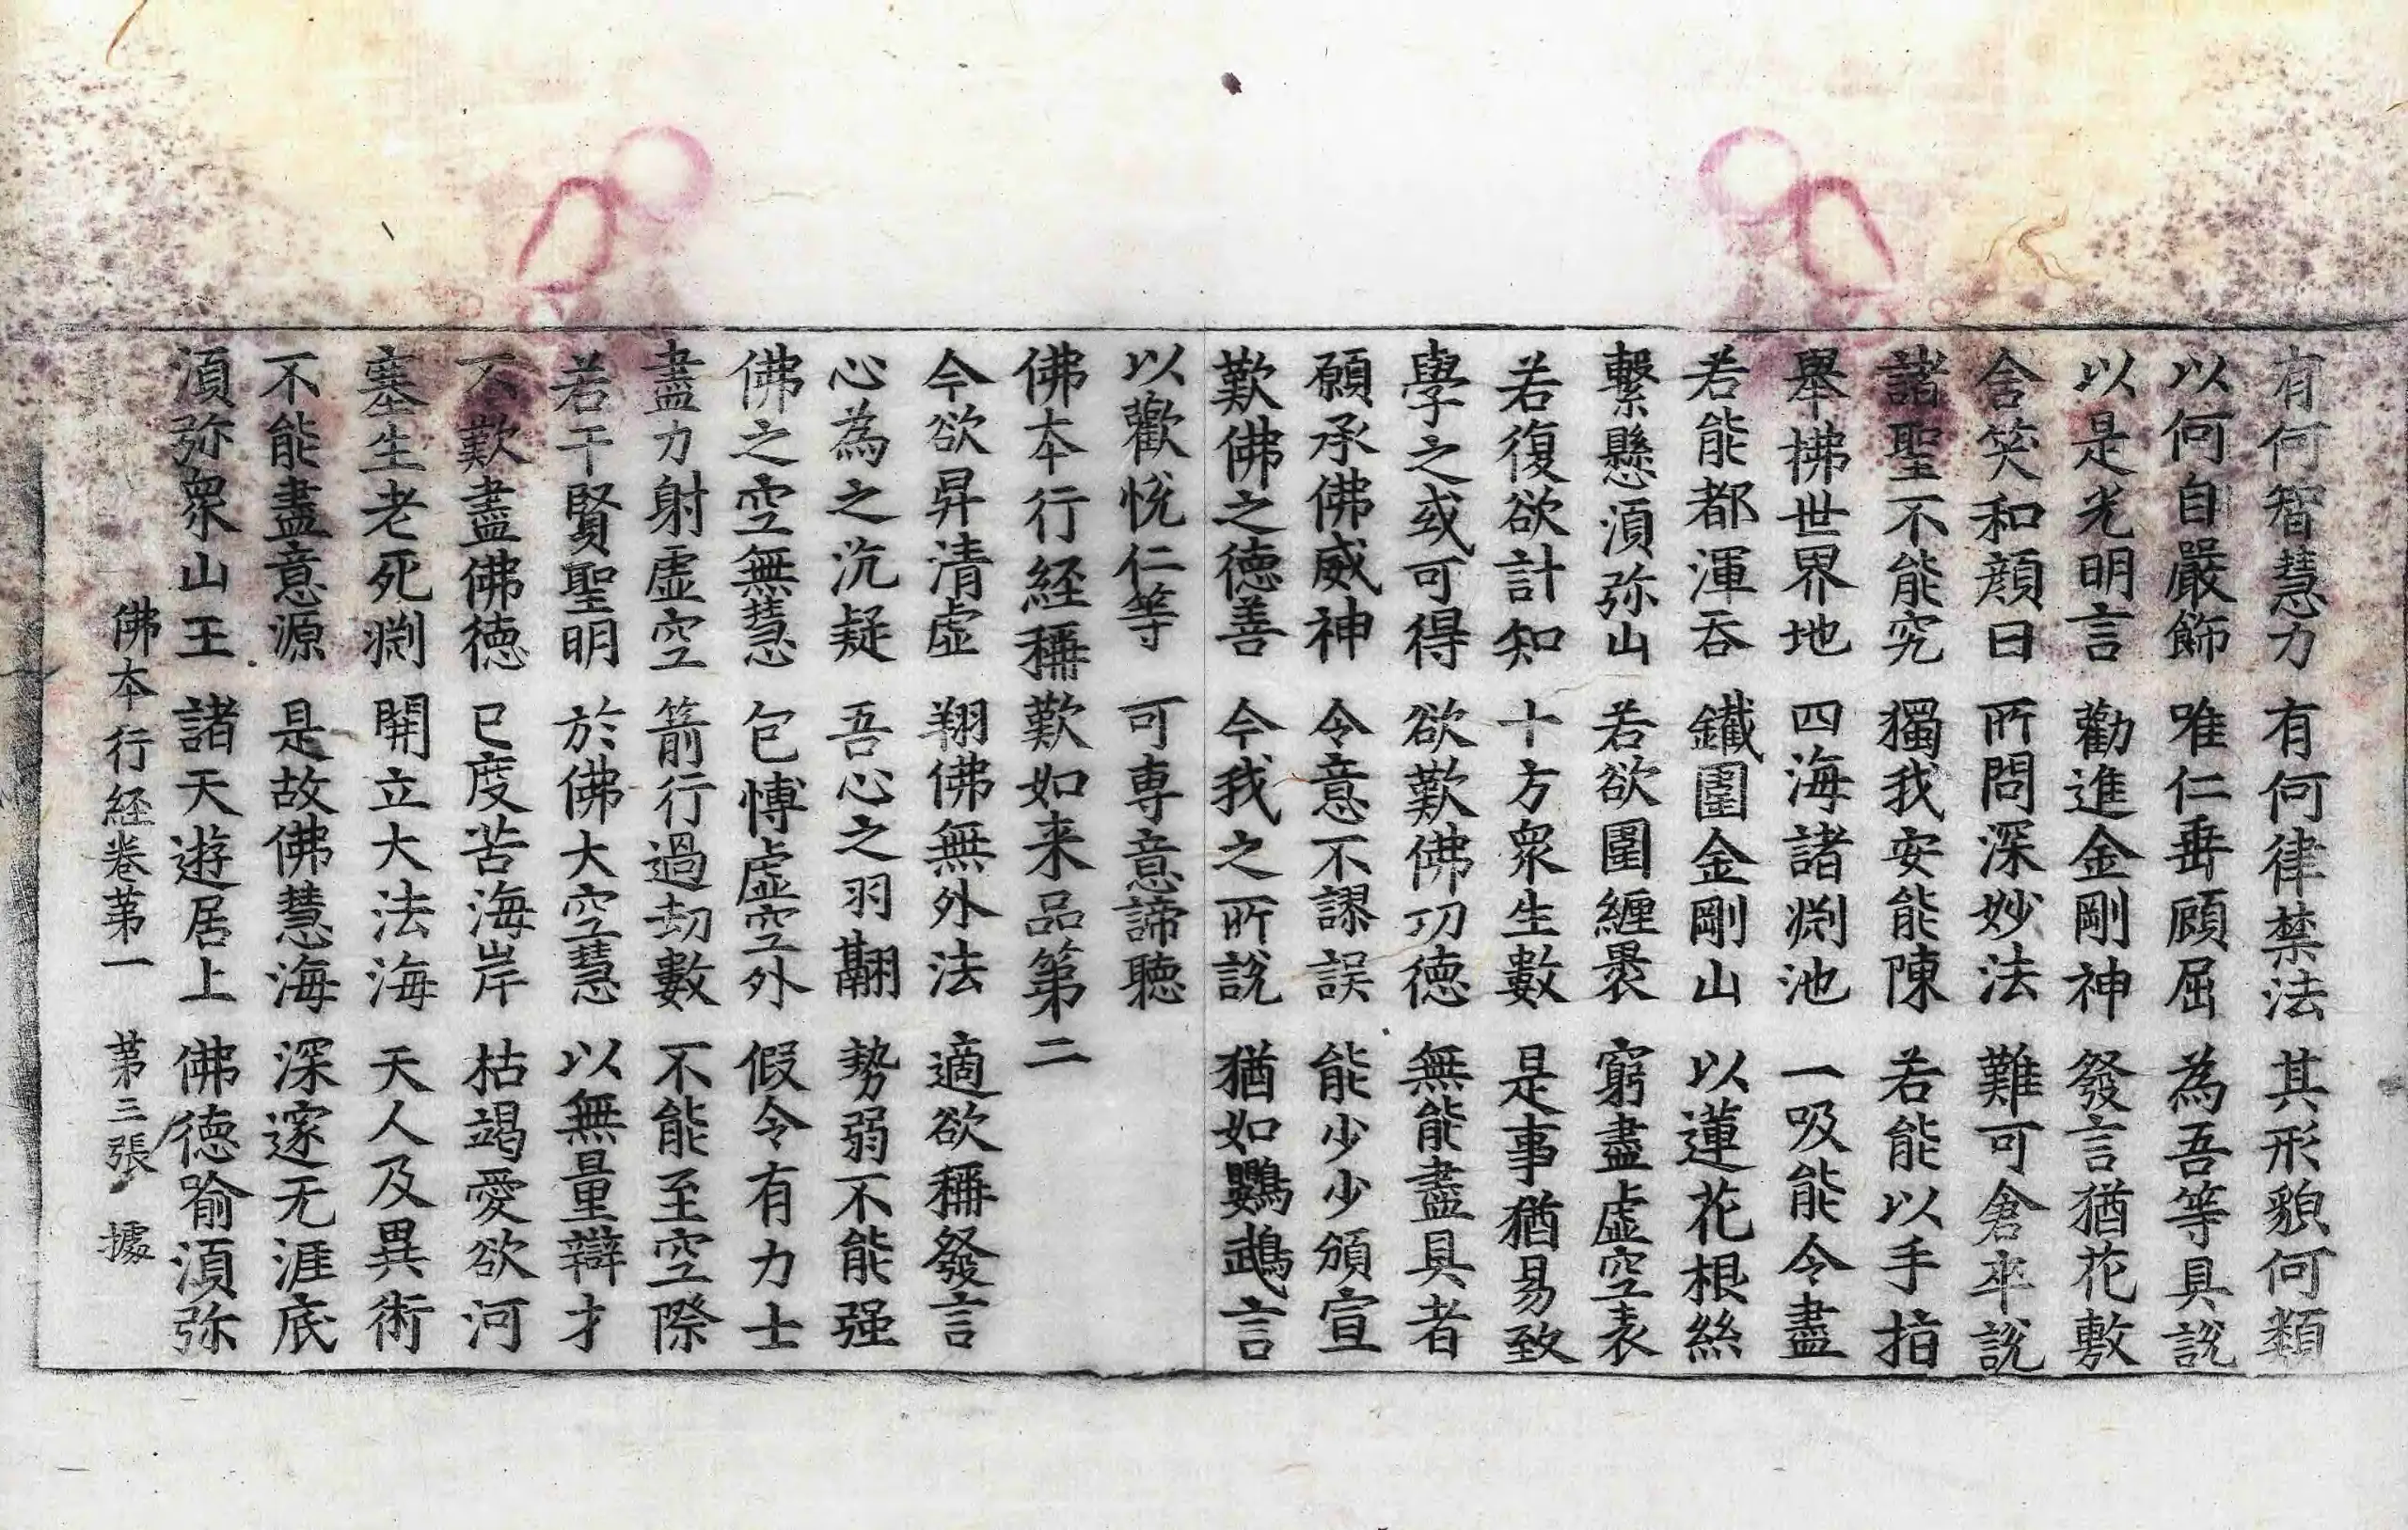 有何智慧力 有何律禁法 其形貌何類
以何自嚴飾 唯仁垂顧屈 為吾等具說
以是光明言 勸進金剛神 發言猶花敷
含笑和顔曰 所問深妙法 難可倉卒說
諸聖不能究 獨我安能陳 若能以手指
舉拂世界地 四海諸渕池 一吸能令盡
若能都渾吞 鐵圍金剛山 以蓮花根絲
繫懸湏弥山 若欲圍纏褁 窮盡虛空表
若復欲計知 十方衆生數 是事猶易致
學之或可得 欲歎佛功德 無能盡具者
願承佛威神 令意不謬誤 能少少頒宣
歎佛之德善 今我之所說 猶如鸚鵡言
以歡悅仁等 可專意諦聽
佛本行經稱歎如来品第二
今欲昇清虛 翔佛無外法 適欲稱發言
心為之沉疑 吾心之羽翮 勢弱不能强
佛之空無慧 包博虛空外 假令有力士
盡力射虛空 箭行過劫數 不能至空際
若干賢聖明 於佛大空慧 以無量辯才
不歎盡佛德 已度苦海岸 枯竭愛欲河
塞生老死渕 開立大法海 天人及異術
不能盡意源 是故佛慧海 深邃无涯底
湏弥衆山王 諸天遊居上 佛德喻湏弥
佛本行経卷苐一 苐三張 據